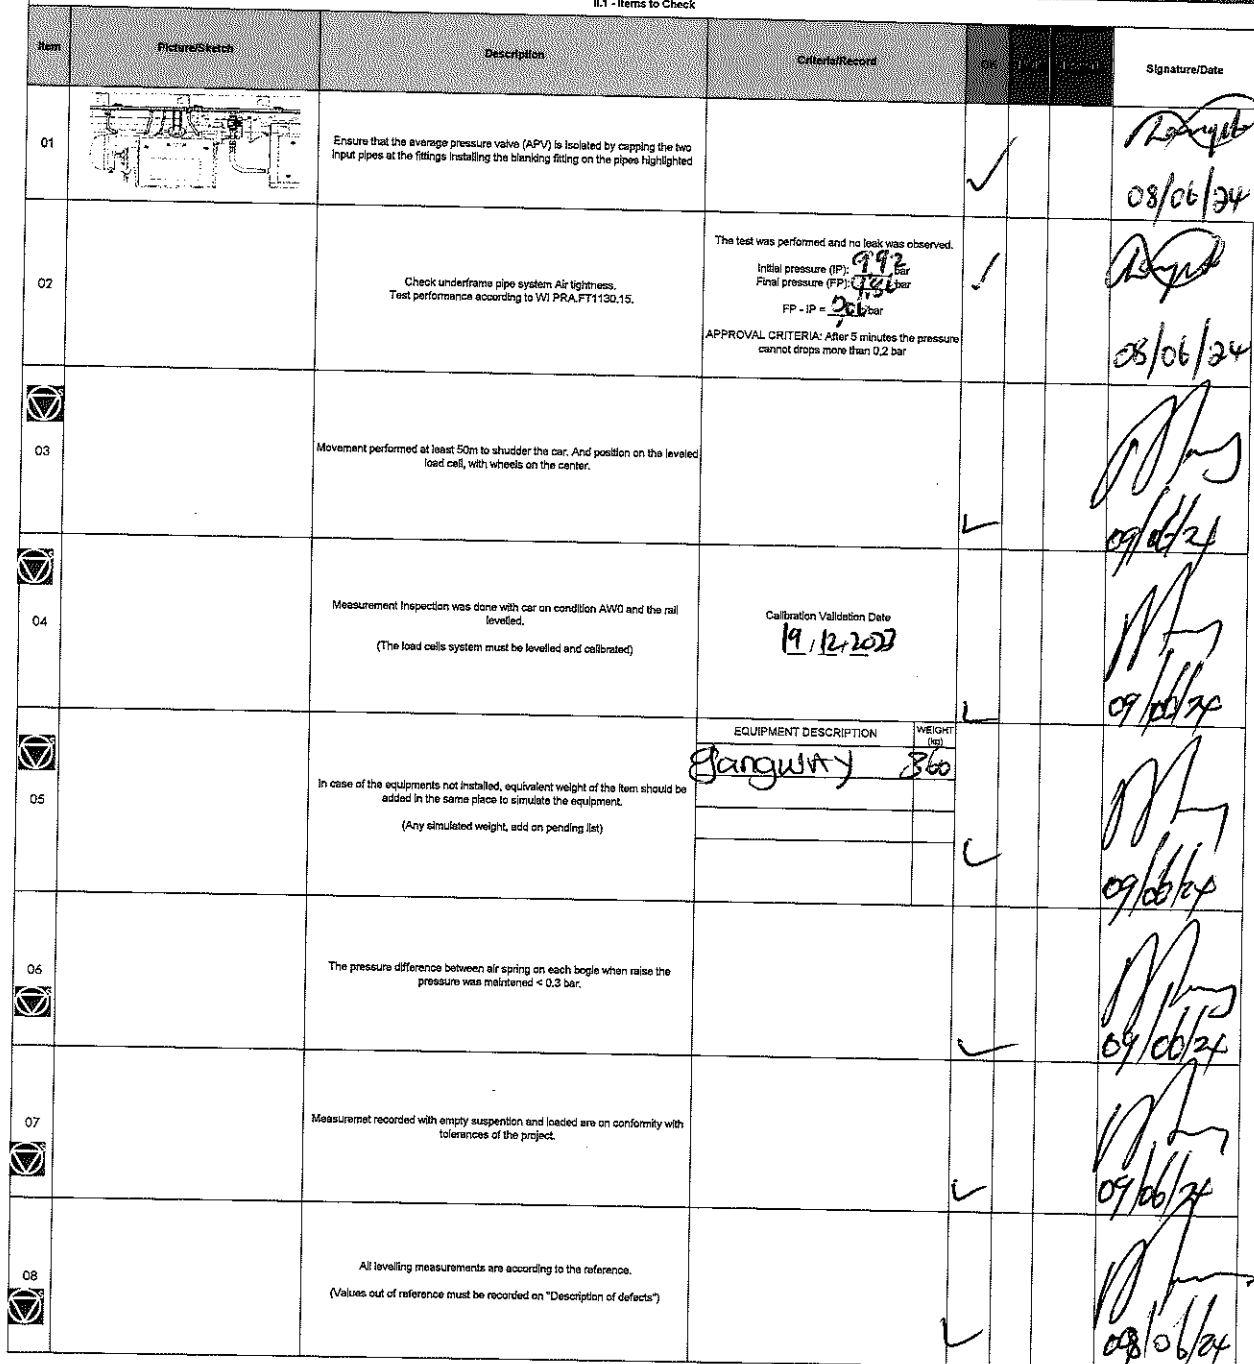 II.1 - Items to Check
Item
Picture/Sketch
Description
Criteria/Record
OK
Signature/Date
01
Ensure that the average pressure valve (APV) is isolated by capping the two
input pipes at the fittings installing the blanking fitting on the pipes highlighted
08/06/24
02
Check underframe pipe system Air tightness.
Test performance according to WI PRA.FT1130.15.
The test was performed and no leak was observed.
Initial pressure (IP): 9,92 bar
Final pressure (FP): bar
FP - IP = bar
APPROVAL CRITERIA: After 5 minutes the pressure
cannot drops more than 0,2 bar
08/06/24
03
Movement performed at least 50m to shudder the car. And position on the leveled
load cell, with wheels on the center.
09/06/24
04
Measurement Inspection was done with car on condition AW0 and the rail
levelled.
(The load cells system must be levelled and calibrated)
Calibration Validation Date
19, 12, 2023
09/06/24
05
In case of the equipments not installed, equivalent weight of the item should be
added in the same place to simulate the equipment.
(Any simulated weight, add on pending list)
EQUIPMENT DESCRIPTION
WEIGHT
(kg)
gangwAy 360
09/06/24
06
The pressure difference between air spring on each bogie when raise the
pressure was maintened < 0.3 bar.
09/06/24
07
Measuremet recorded with empty suspention and loaded are on conformity with
tolerances of the project.
09/06/24
08
All levelling measurements are according to the reference.
(Values out of reference must be recorded on "Description of defects")
/06/24